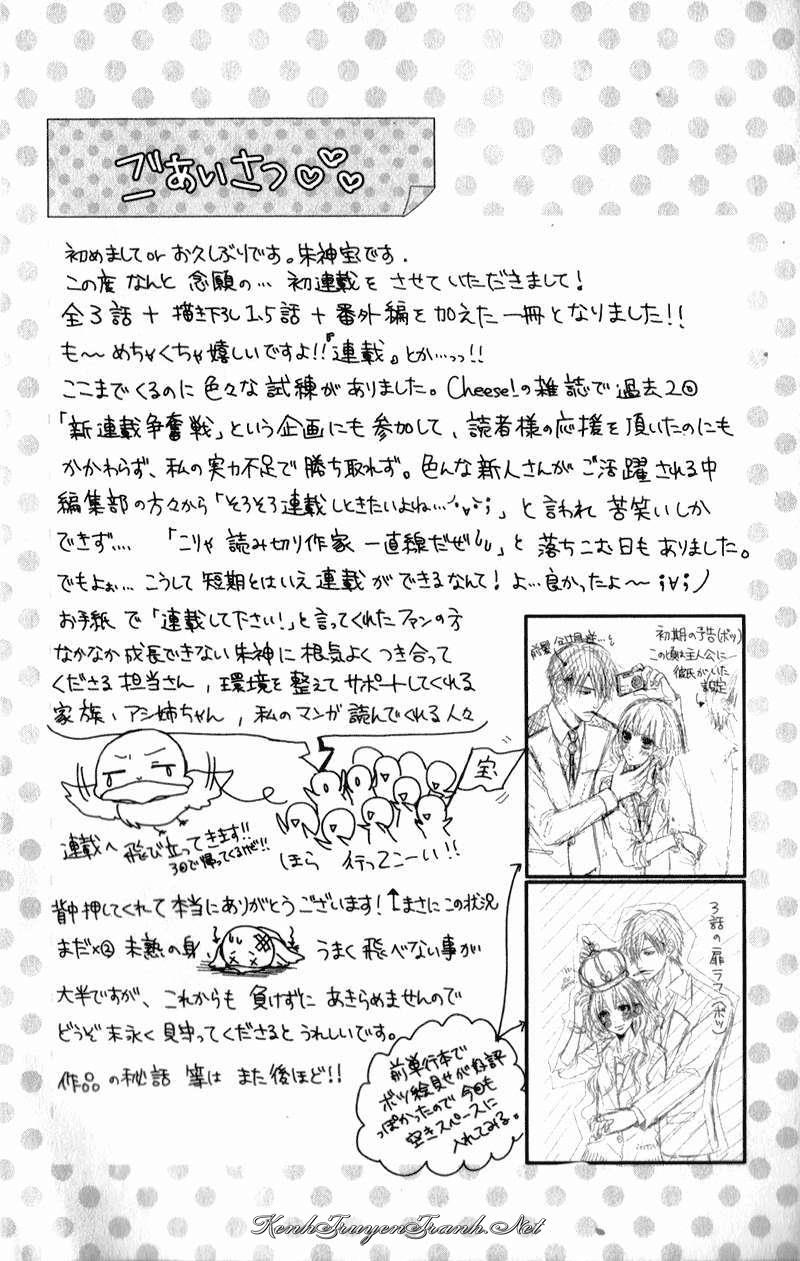 ごあいさつ♡♡♡
初めまして or お久しぶりです。朱神宝です.
この度 なんと 念願の… 初連載を させていただきまして!
全3話 + 描き下ろし1.5話 + 番外編を 加えた 一冊となりました!!
も〜 めちゃくちゃ嬉しいですよ!!『連載』とか…っっ!!
ここまでくるのに 色々な 試練がありました。Cheese!の雑誌で 過去2回
「新連載争奪戦」という企画にも 参加して、読者様の応援を頂いたのにも
かかわらず、私の実力不足で 勝ち取れず。色んな新人さんが ご活躍される中
編集部の方々から「そろそろ連載しときたいよね…」と 言われ 苦笑いしか
できず…. 「こりゃ 読み切り作家 一直線だぜ」と 落ちこむ日もありました。
でもよぉ… こうして 短期とはいえ 連載ができるなんて! よ…良かったよ〜
お手紙 で「連載して下さい!」と言ってくれた ファンの方
なかなか成長できない朱神に 根気よく つき合って
くださる 担当さん, 環境を整えて サポートしてくれる
家族、アシ姉ちゃん, 私のマンガ 読んでくれる人々
宝
連載へ 飛び立ってきます!!
3回で帰ってくるぜ!!
ほら 行ってこーい!!
背中押してくれて 本当にありがとうございます! ↑まさにこの状況
まだ×2 未熟の身 うまく 飛べない事が
大半ですが、これからも 負けずに あきらめませんので
どうぞ 末永く 見守ってくださると うれしいです。
作品 の秘話 等は また後ほど!!
初期の予告(ボツ)
この頃は主人公に
彼氏がいた
設定
3話の扉ラフ(ボツ)
前単行本で
ボツ絵見せが好評
っぽかったので 今回も
空きスペースに
入れてみる。
KenhTruyenTranh.Net